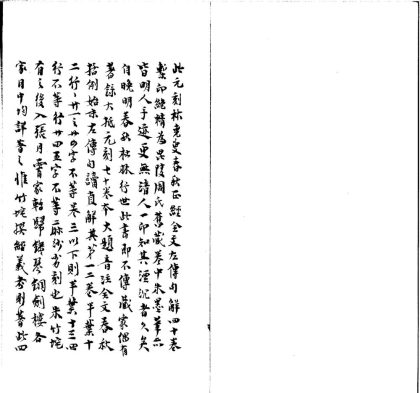 此元刻林堯叟春秋正經全文左傳句解四十卷
槧印絕精為毘陵周氏舊藏卷中朱墨筆亦
皆明人手迹更無清人一印知其湮沉者久矣
自晚明春秋杜林行世此書即不傳藏家偶有
著錄大抵元刻七十卷本大題音注全文春秋
括例始末左傳句讀直解其第一二卷半葉十
二行行廿一二廿四字不等卷三以下則半葉十三四
行不等行廿四五字不等二麻沙書刻也朱竹垞
有之後入張月霄家轉歸鐵琴銅劍樓各
家目中均詳著之惟竹垞撰經義考則著此四